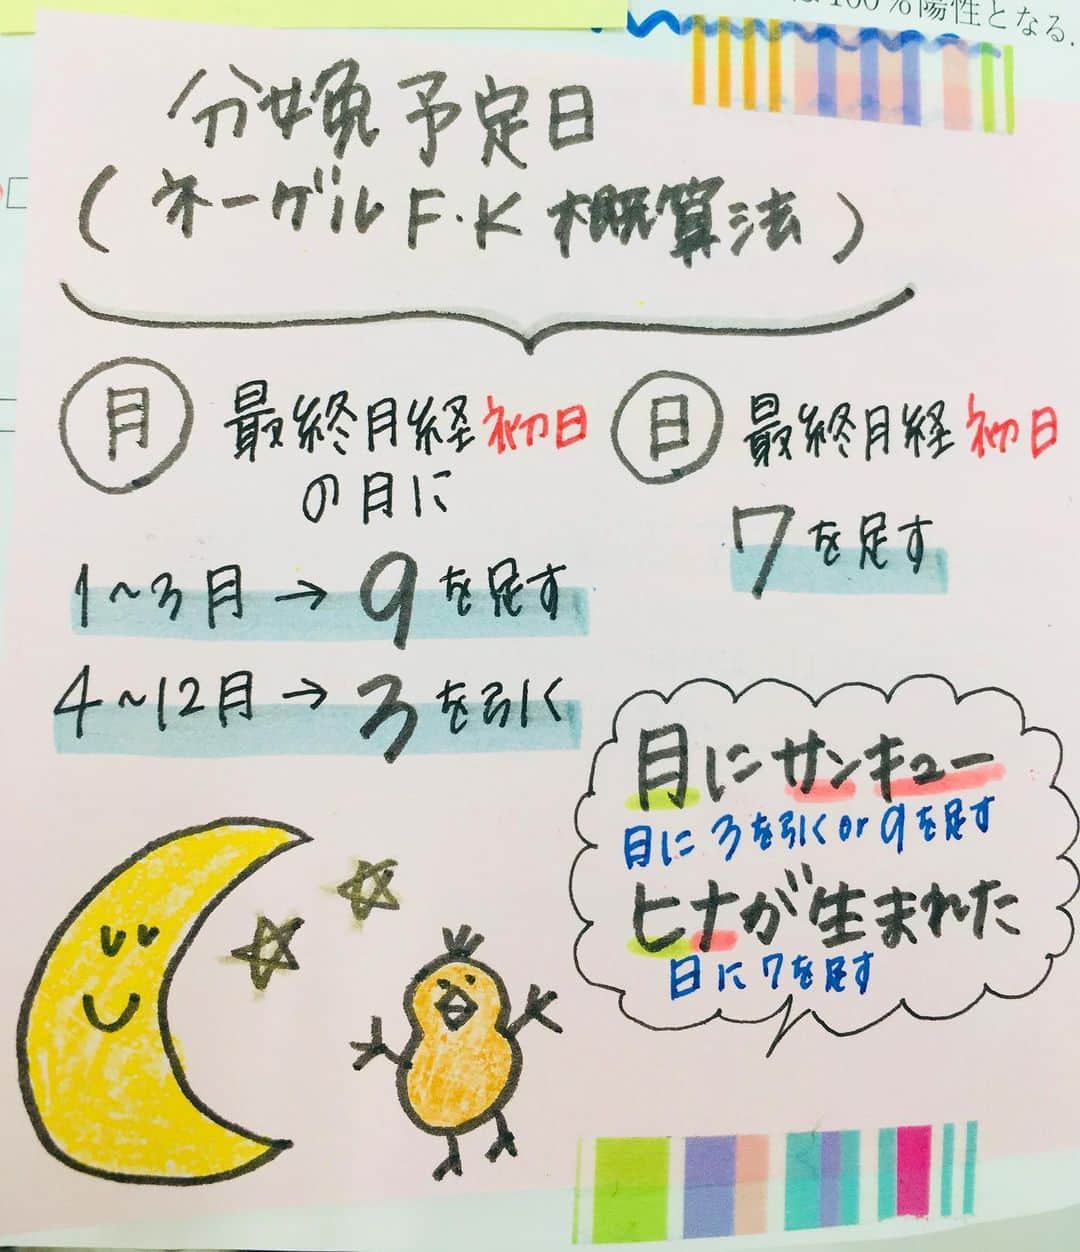 は100%陽性となる.
分娩予定日
(ネーゲルF.K概算法)
月 最終月経初日
の月に
1~3月→9を足す
4~12月→3を引く
日 最終月経初日
7を足す
月にサンキュー
月に3を引くor9を足す
ヒナが生まれた
日に7を足す